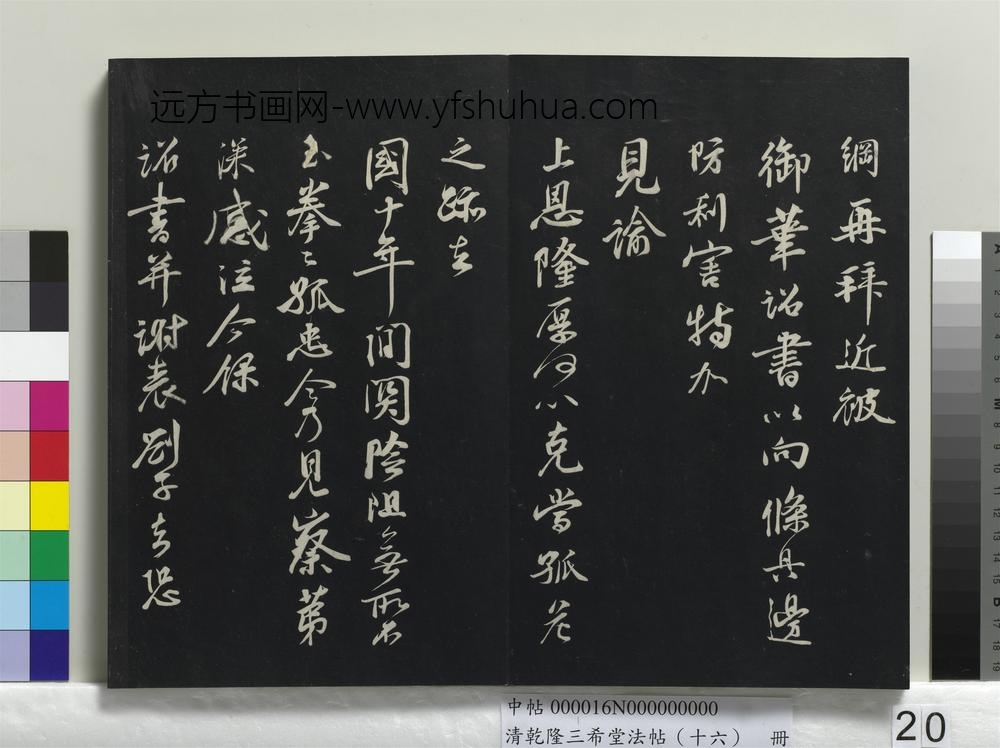 远方书画网-www.yfshuhua.com
綱再拜近被
御筆詔書以向條具邊
防利害特加
見諭
上恩隆厚何以克當孤危
之跡去
國十年間關險阻無所不
至拳〻孤忠今乃見察第
深感泣今
詔書并謝表劄子去恐
中帖 000016N000000000
清乾隆三希堂法帖（十六） 冊
20